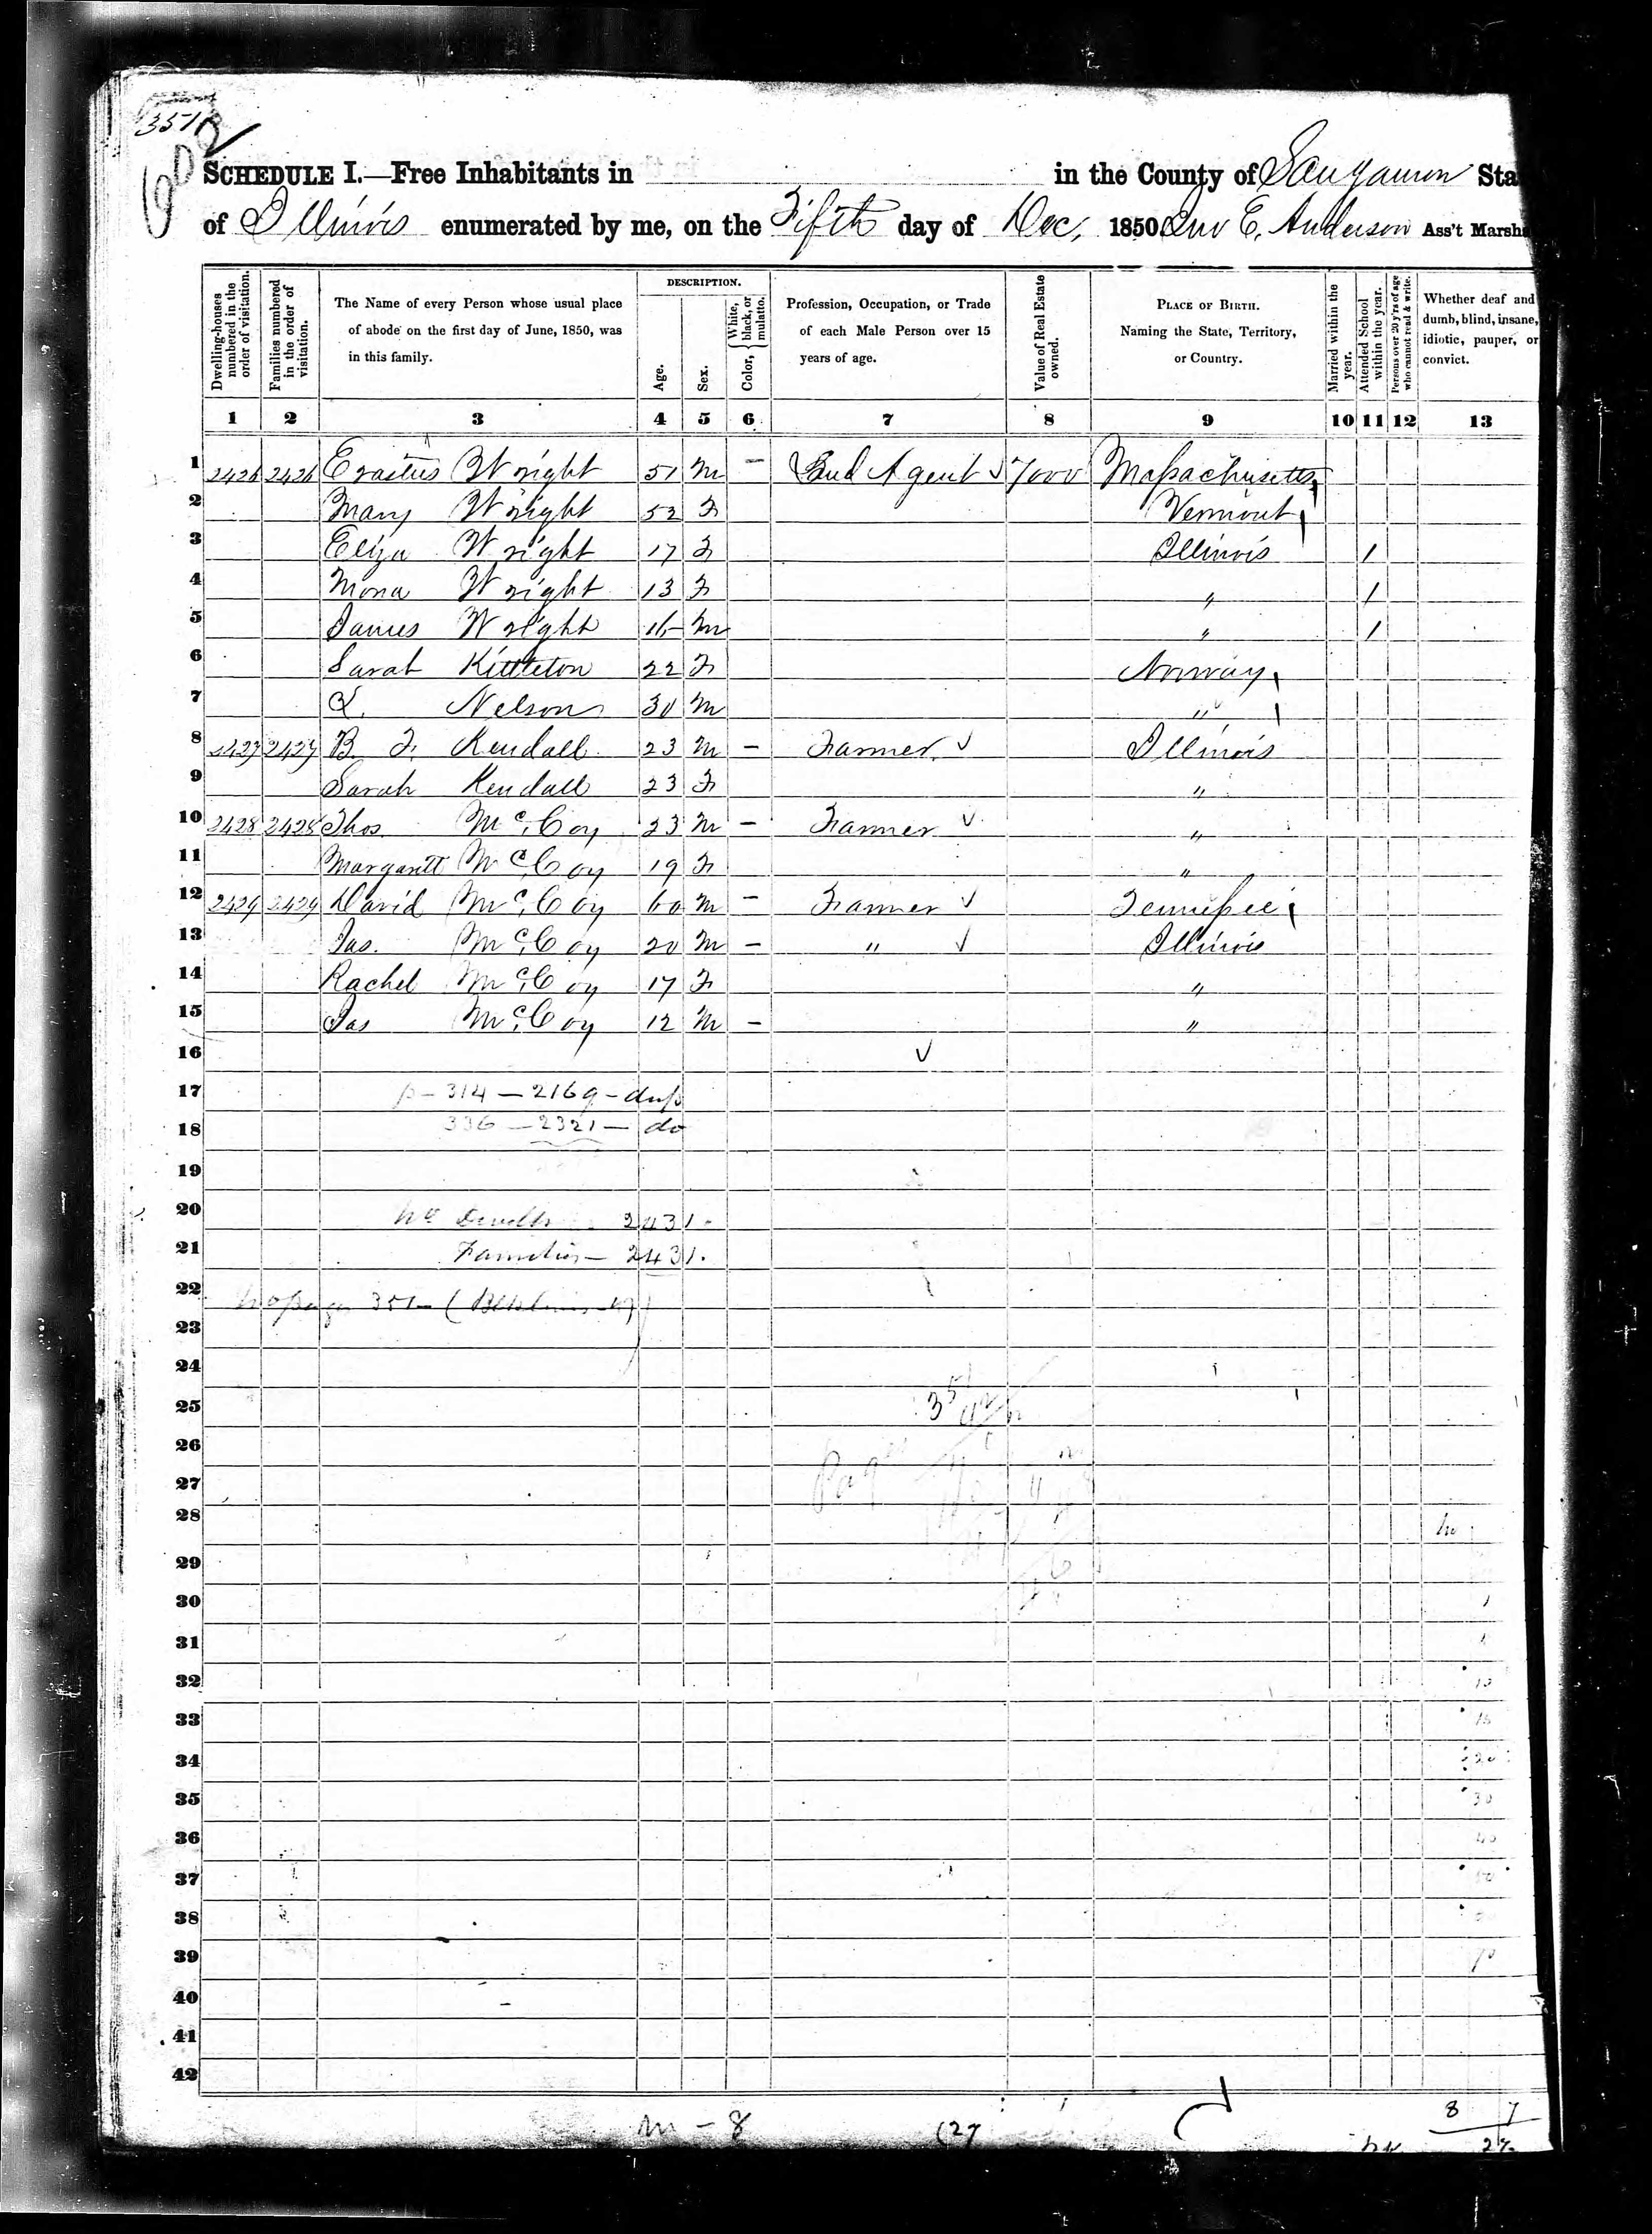 351
602
SCHEDULE I.—Free Inhabitants in in the County of Sangamon Sta
of Illinois enumerated by me, on the Fifth day of Dec, 1850. Jno E. Anderson Ass't Marsh
Dwelling-houses numbered in the order of visitation.
Families numbered in the order of visitation.
The Name of every Person whose usual place of abode on the first day of June, 1850, was in this family.
DESCRIPTION.
Age.
Sex.
Color, { White, black, or mulatto.
Profession, Occupation, or Trade of each Male Person over 15 years of age.
Value of Real Estate owned.
PLACE OF BIRTH. Naming the State, Territory, or Country.
Married within the year.
Attended School within the year.
Persons over 20 y'rs of age who cannot read & write.
Whether deaf and dumb, blind, insane, idiotic, pauper, or convict.
1 2 3 4 5 6 7 8 9 10 11 12 13
1 2426 2426 Erastus Wright 51 M – Land Agent 7000 Massachusetts
2 Mary Wright 52 F Vermont
3 Eliza Wright 17 F Illinois 1
4 Mona Wright 13 F " 1
5 James Wright M " 1
6 Sarah Kittleton 22 F Norway
7 L. Nelson 30 M "
8 2427 2427 B. F. Kendall 23 M – Farmer Illinois
9 Sarah Kendall 23 F "
10 2428 2428 Thos. McCoy 23 M – Farmer "
11 Margarett McCoy 19 F "
12 2429 2429 David McCoy 60 M – Farmer Tennessee
13 Jas. McCoy 20 M – " Illinois
14 Rachel McCoy 17 F "
15 Jas McCoy 12 M – "
16
17 p – 314 – 2169 – dup
18 336 – 2321 – do
19
20 No Dwells 2431.
21 Families – 2431.
22 No pages 351 –
23
24
25 351
26
27 Pag
28
29
30
31
32 10
33 15
34 20
35 30
36 40
37 50
38
39 70
40
41
42
M – 8 (27 8 7
27